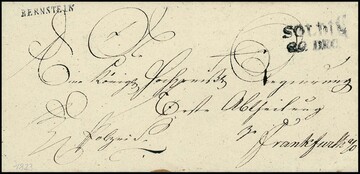 BERNSTEIN
SOLDIN
20 DEC.
Eine Königl Hochpreißl Regierung
Erste Abtheilung
zu
Frankfurth a/O